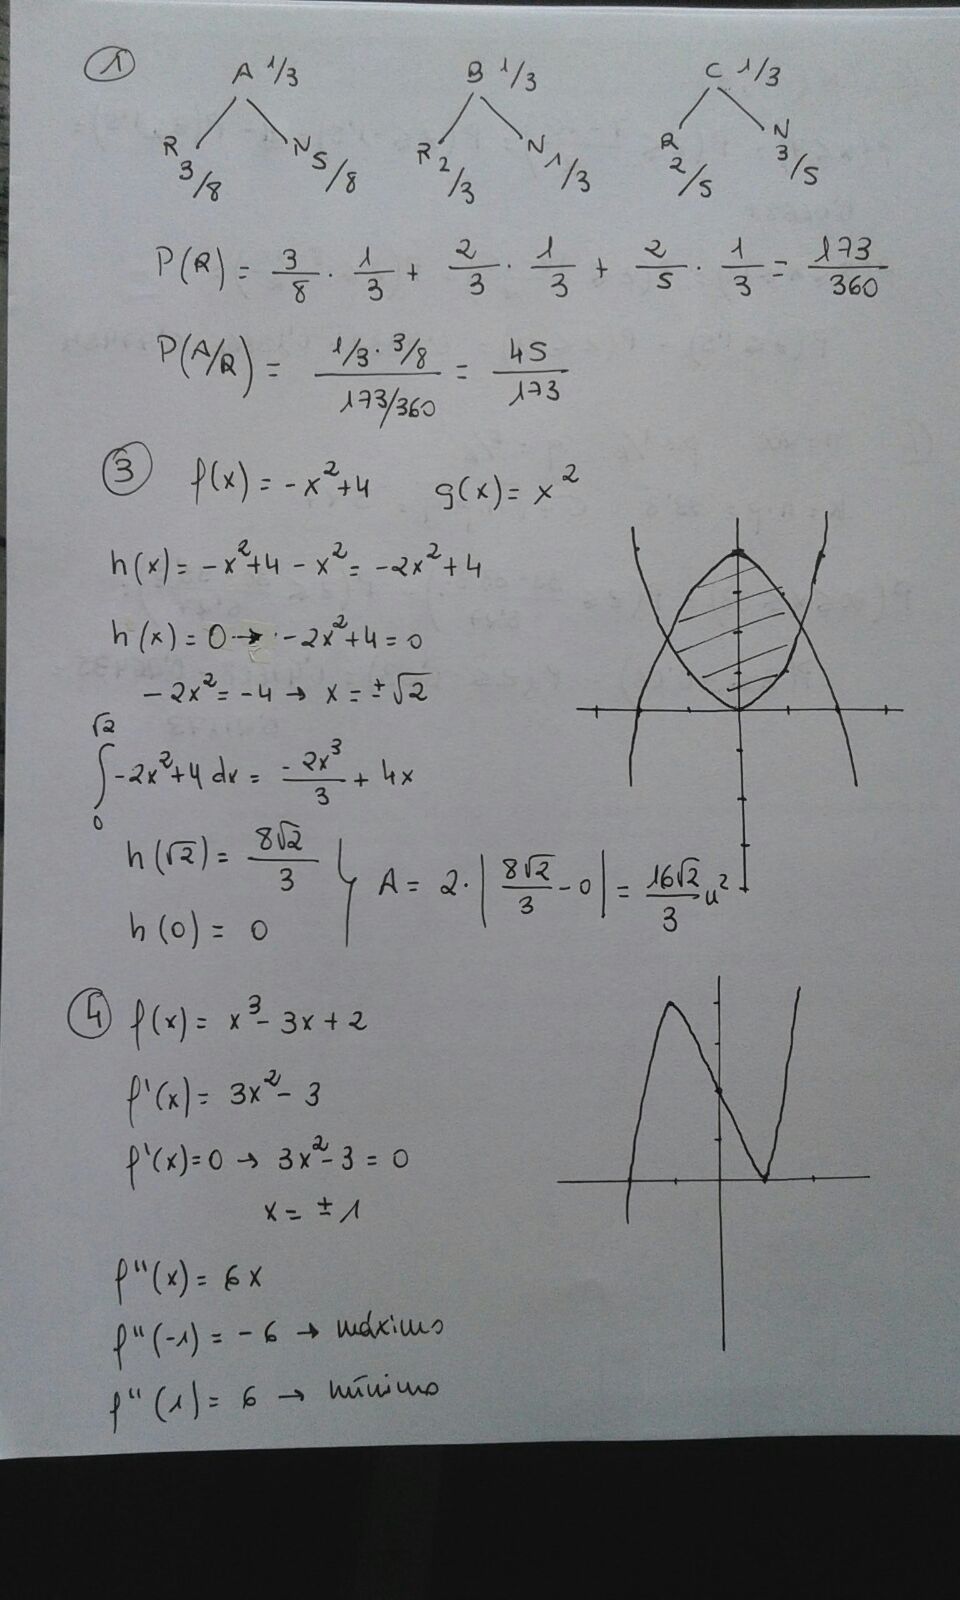 ①
A 1/3 B 1/3 C 1/3
R 3/8 N 5/8 R 2/3 N 1/3 R 2/5 N 3/5
P(R) = 3/8 · 1/3 + 2/3 · 1/3 + 2/5 · 1/3 = 173/360
P(A/R) = (1/3 · 3/8)/(173/360) = 45/173
③ f(x) = -x²+4 g(x) = x²
h(x) = -x²+4 - x² = -2x²+4
h(x) = 0 → -2x²+4 = 0
-2x² = -4 → x = ±√2
∫₀^√2 -2x²+4 dx = -2x³/3 + 4x
h(√2) = 8√2/3
h(0) = 0
A = 2·|8√2/3 - 0| = 16√2/3 u²
④ f(x) = x³ - 3x + 2
f'(x) = 3x² - 3
f'(x) = 0 → 3x² - 3 = 0
x = ±1
f''(x) = 6x
f''(-1) = -6 → máximo
f''(1) = 6 → mínimo